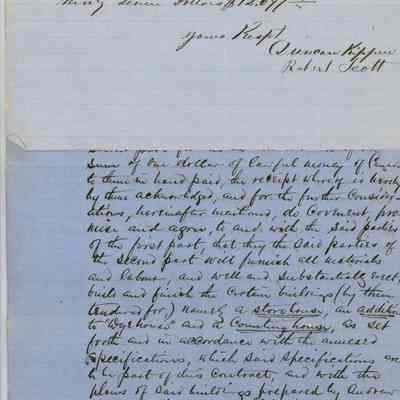 thirty seven Dollars $12.077
yours Respt
Duncan Kippen
Robert Scott
Sum of one dollar of lawful money of
to them in hand paid, the receipt whereof is hereby
by them acknowledged, and for the further Consider
ations, hereinafter mentioned, do Covenant, pro
mise and agree, to and with the said parties
of the first part, that they the said parties of
the second part will furnish all materials
and labour, and well and substantially erect
build and finish the certain buildings (by them
tendered for) namely a store house, an addition
to "Dye house" and a Counting house, as set
forth and in accordance with the annexed
Specifications, which said specifications are
to be part of this Contract, and with the
plans of said buildings prepared by Andrew